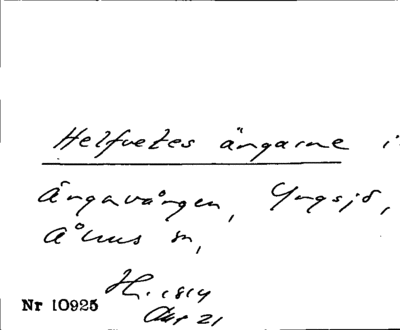 Helfvetes ängarne i
Ängavången, Yngsjö,
Åhus sn,
H. 1814
Nr 10925
Akt 21